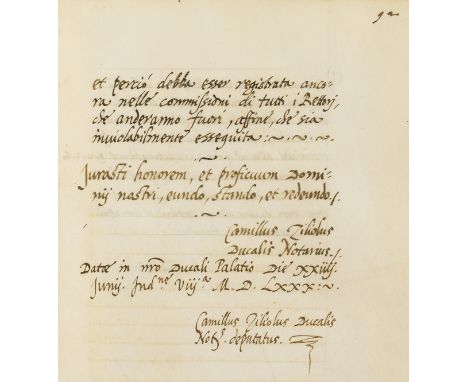 92
et perciò debba esser registrata anco-
ra nelle commissioni di tutti i Rettori,
che anderanno fuori, affine, che sia
inviolabilmente esseguita :~.~.~.
.~.
Jurasti honorem, et proficuum Domi-
nij nostri, eundo, stando, et redeundo/.
.~.
Camillus Ziliolus
Ducalis Notarius/.
Datæ in nrō Ducali Palatio Die XXIIIJ
Junij. Indne VIIJa M. D. LXXX:~.
Camillus Ziliolus Ducalis
Nots. deputatus.